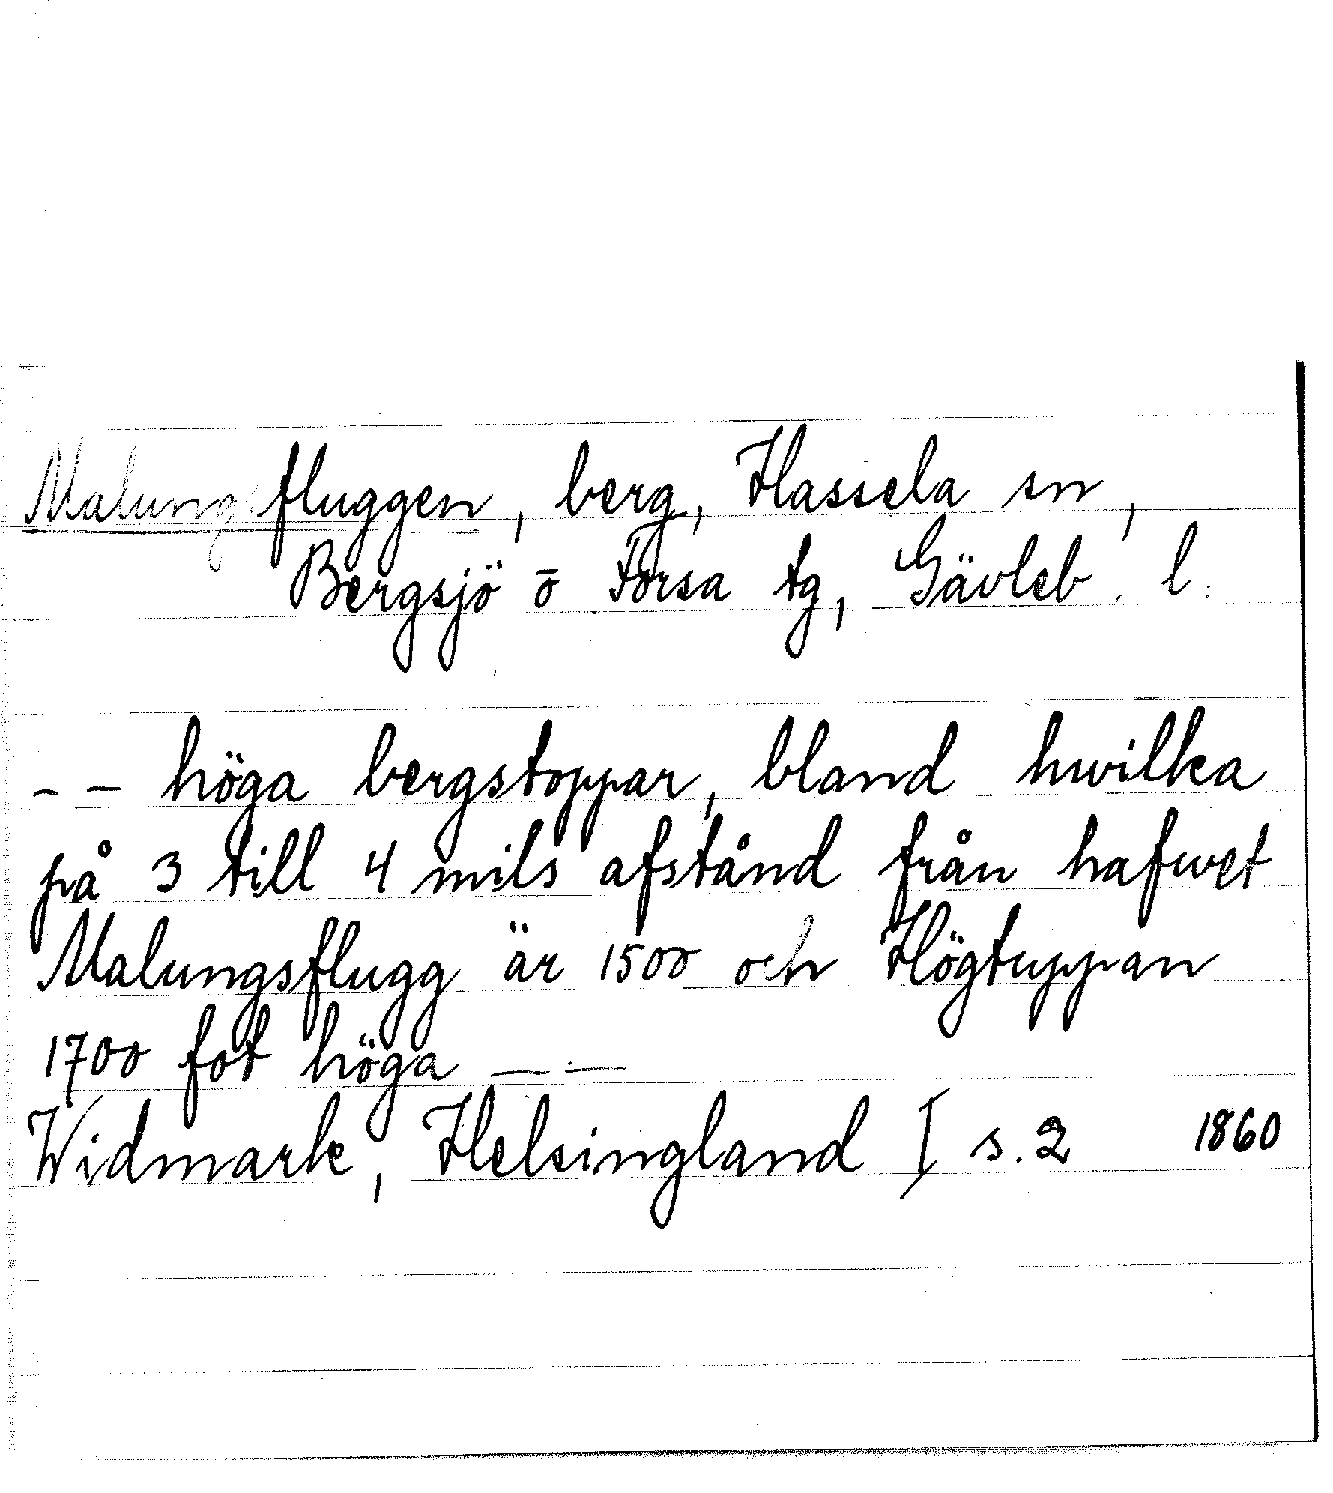 Malungsfluggen, berg, Hassela sn,
Bergsjö o Forsa tg, Gävleb. l.
– – höga bergstoppar, bland hwilka
på 3 till 4 mils afstånd från hafwet
Malungsflugg är 1500 och Högtuppan
1700 fot höga – –
Widmark, Helsingland I s. 2 1860